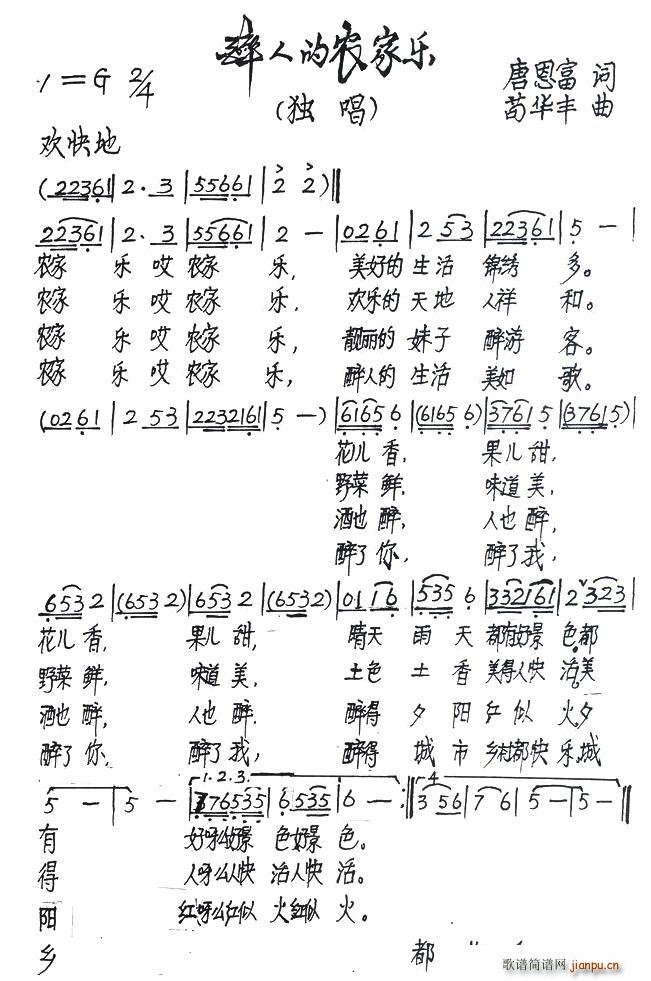 醉人的农家乐
(独 唱)
1=G 2/4
唐恩富 词
苟华丰 曲
欢快地
(22361|2·3|55661|2 2)‖
22361|2·3|55661|2 —|0261|2 53|22361|5 —|
农家 乐 哎 农家 乐, 美好的 生活 锦绣 多。
农家 乐 哎 农家 乐, 欢乐的 天地 人祥 和。
农家 乐 哎 农家 乐, 靓丽的 妹子 醉游 客。
农家 乐 哎 农家 乐, 醉人的 生活 美如 歌。
(0261|2 53|2232161|5 —)|6165 6|(6165 6)|3761 5|(3761 5)|
花儿 香, 果儿 甜,
野菜 鲜, 味道 美,
酒也 醉, 人也 醉,
醉了 你, 醉了 我,
653 2|(653 2)|653 2|(653 2)|011 6|535 6|332161|2 323|
花儿 香, 果儿 甜, 晴天 雨 天 都有好景 色都
野菜 鲜, 味道 美, 土色 土 香 美得人快 活美
酒也 醉, 人也 醉, 醉得 夕 阳 红 似 火夕
醉了 你, 醉了 我, 醉得 城 市 乡村都快 乐城
5 —|5 —|1.2.3. 376535|6 535|6 —:‖4 3 56|7 6|5 —|5 —‖
有 好呀么好景 色好景 色。
得 人呀么人快 活人快 活。
阳 红呀么红似 火红似 火。
乡 都
歌谱简谱网
jianpu.cn